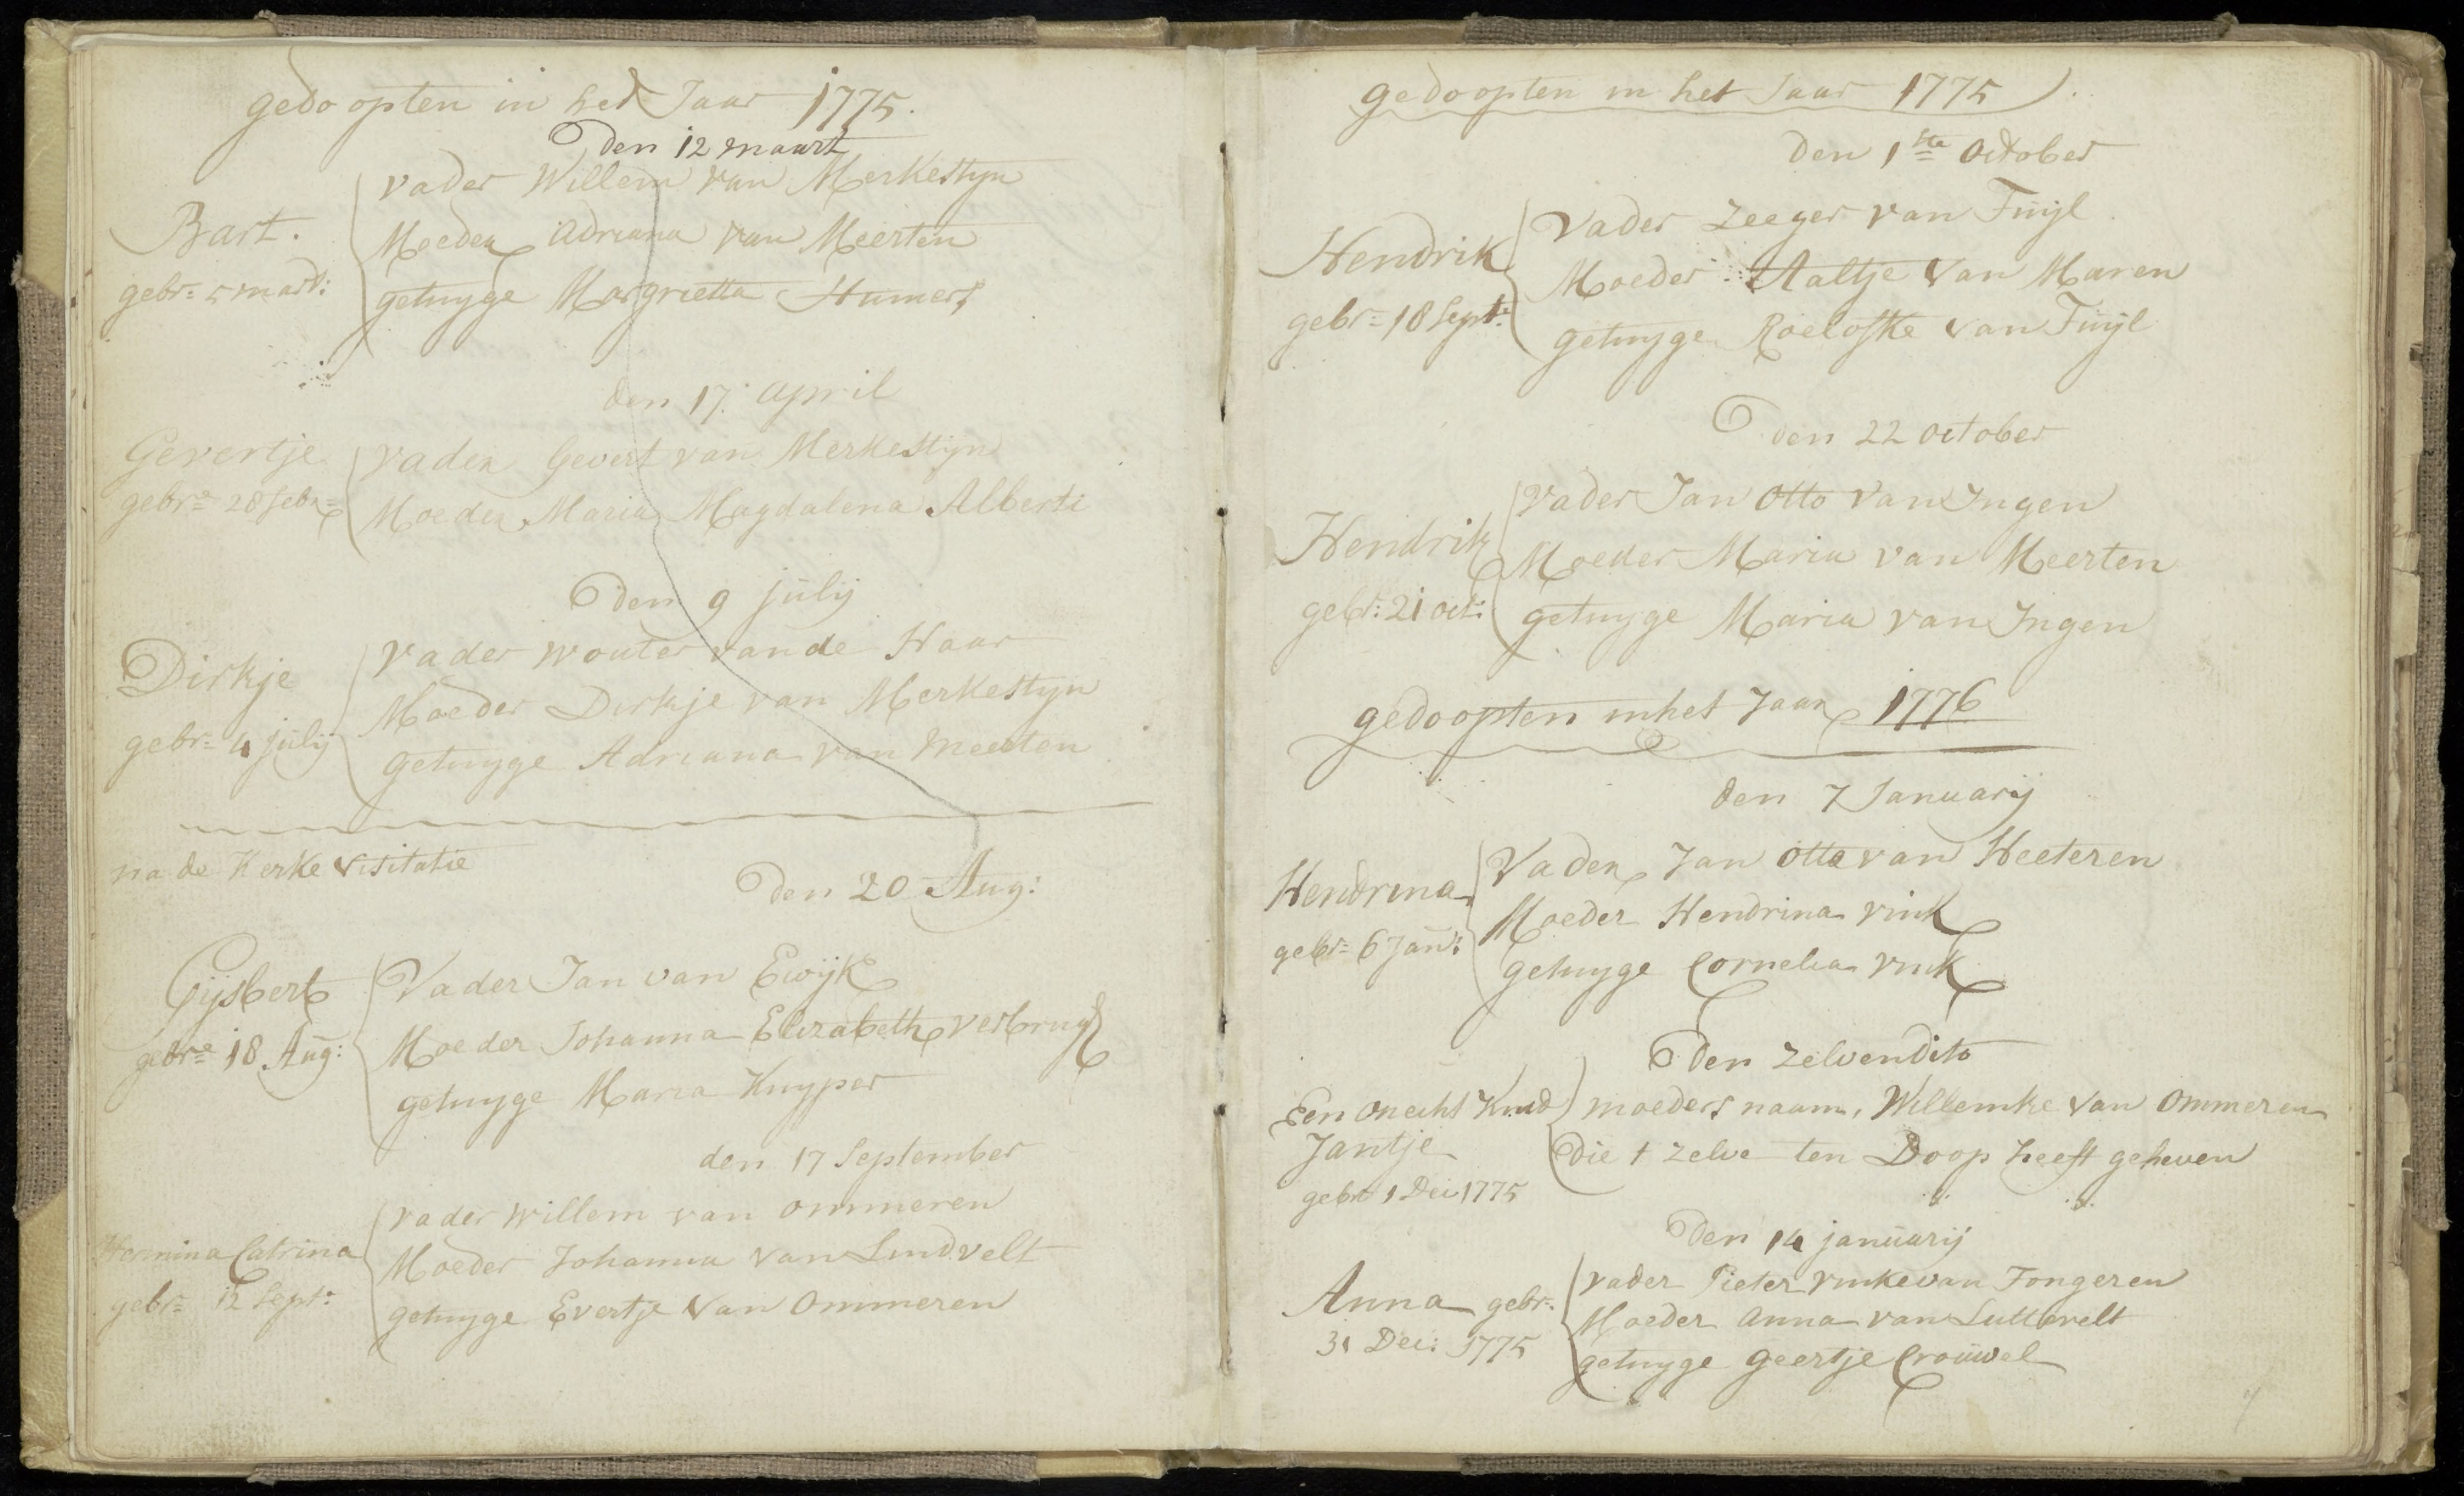 gedoopten in het Jaar 1775.
Den 12 maart
Bart.
gebr: 5 mart:
vader Willem van Merkestyn
Moeder Adriana van Meerten
getuyge Margrietta Humers
den 17 april
Gevertje
gebr: 28 febr:
vader Gevert van Merkestyn
Moeder Maria Magdalena Alberti
Den 9 julij
Dirkje
gebr: 4 julij
Vader wouter van de Haar
Moeder Dirkje van Merkestyn
getuyge Adriana van Meerten
na de Kerke visitatie
Den 20 Aug:
Gijsbert
gebr: 18 Aug:
Vader Jan van Ewijk
Moeder Johanna Elizabeth verbrugh
getuyge Maria Kuyper
den 17 September
Hermina Catrina
gebr: 12 Sept:
vader willem van ommeren
Moeder Johanna van Lindvelt
getuyge Evertje van Ommeren
gedoopten in het Jaar 1775
den 1ste October
Hendrik
gebr: 18 Sept:
Vader Zeeger van Tuijl
Moeder Aaltje van Maren
getuyge Roelofke van Tuijl
Den 22 october
Hendrik
gebr: 21 oct:
Vader Jan Otto van Ingen
Moeder Maria van Meerten
getuyge Maria van Ingen
gedoopten in het Jaar 1776
den 7 Januarij
Hendrina
gebr: 6 Jan:
Vader Jan otto van Heeteren
Moeder Hendrina vink
getuyge Cornelia vink
Den zelven dito
Een onecht Kind
Jantje
gebr 1 Dec 1775
moeders naam, Willemke van Ommeren
Die t zelve ten Doop heeft geheven
Den 14 januarij
Anna gebr:
31 Dec: 1775
vader Pieter vinke van Tongeren
Moeder Anna van Luttervelt
getuyge geertje Crouwel